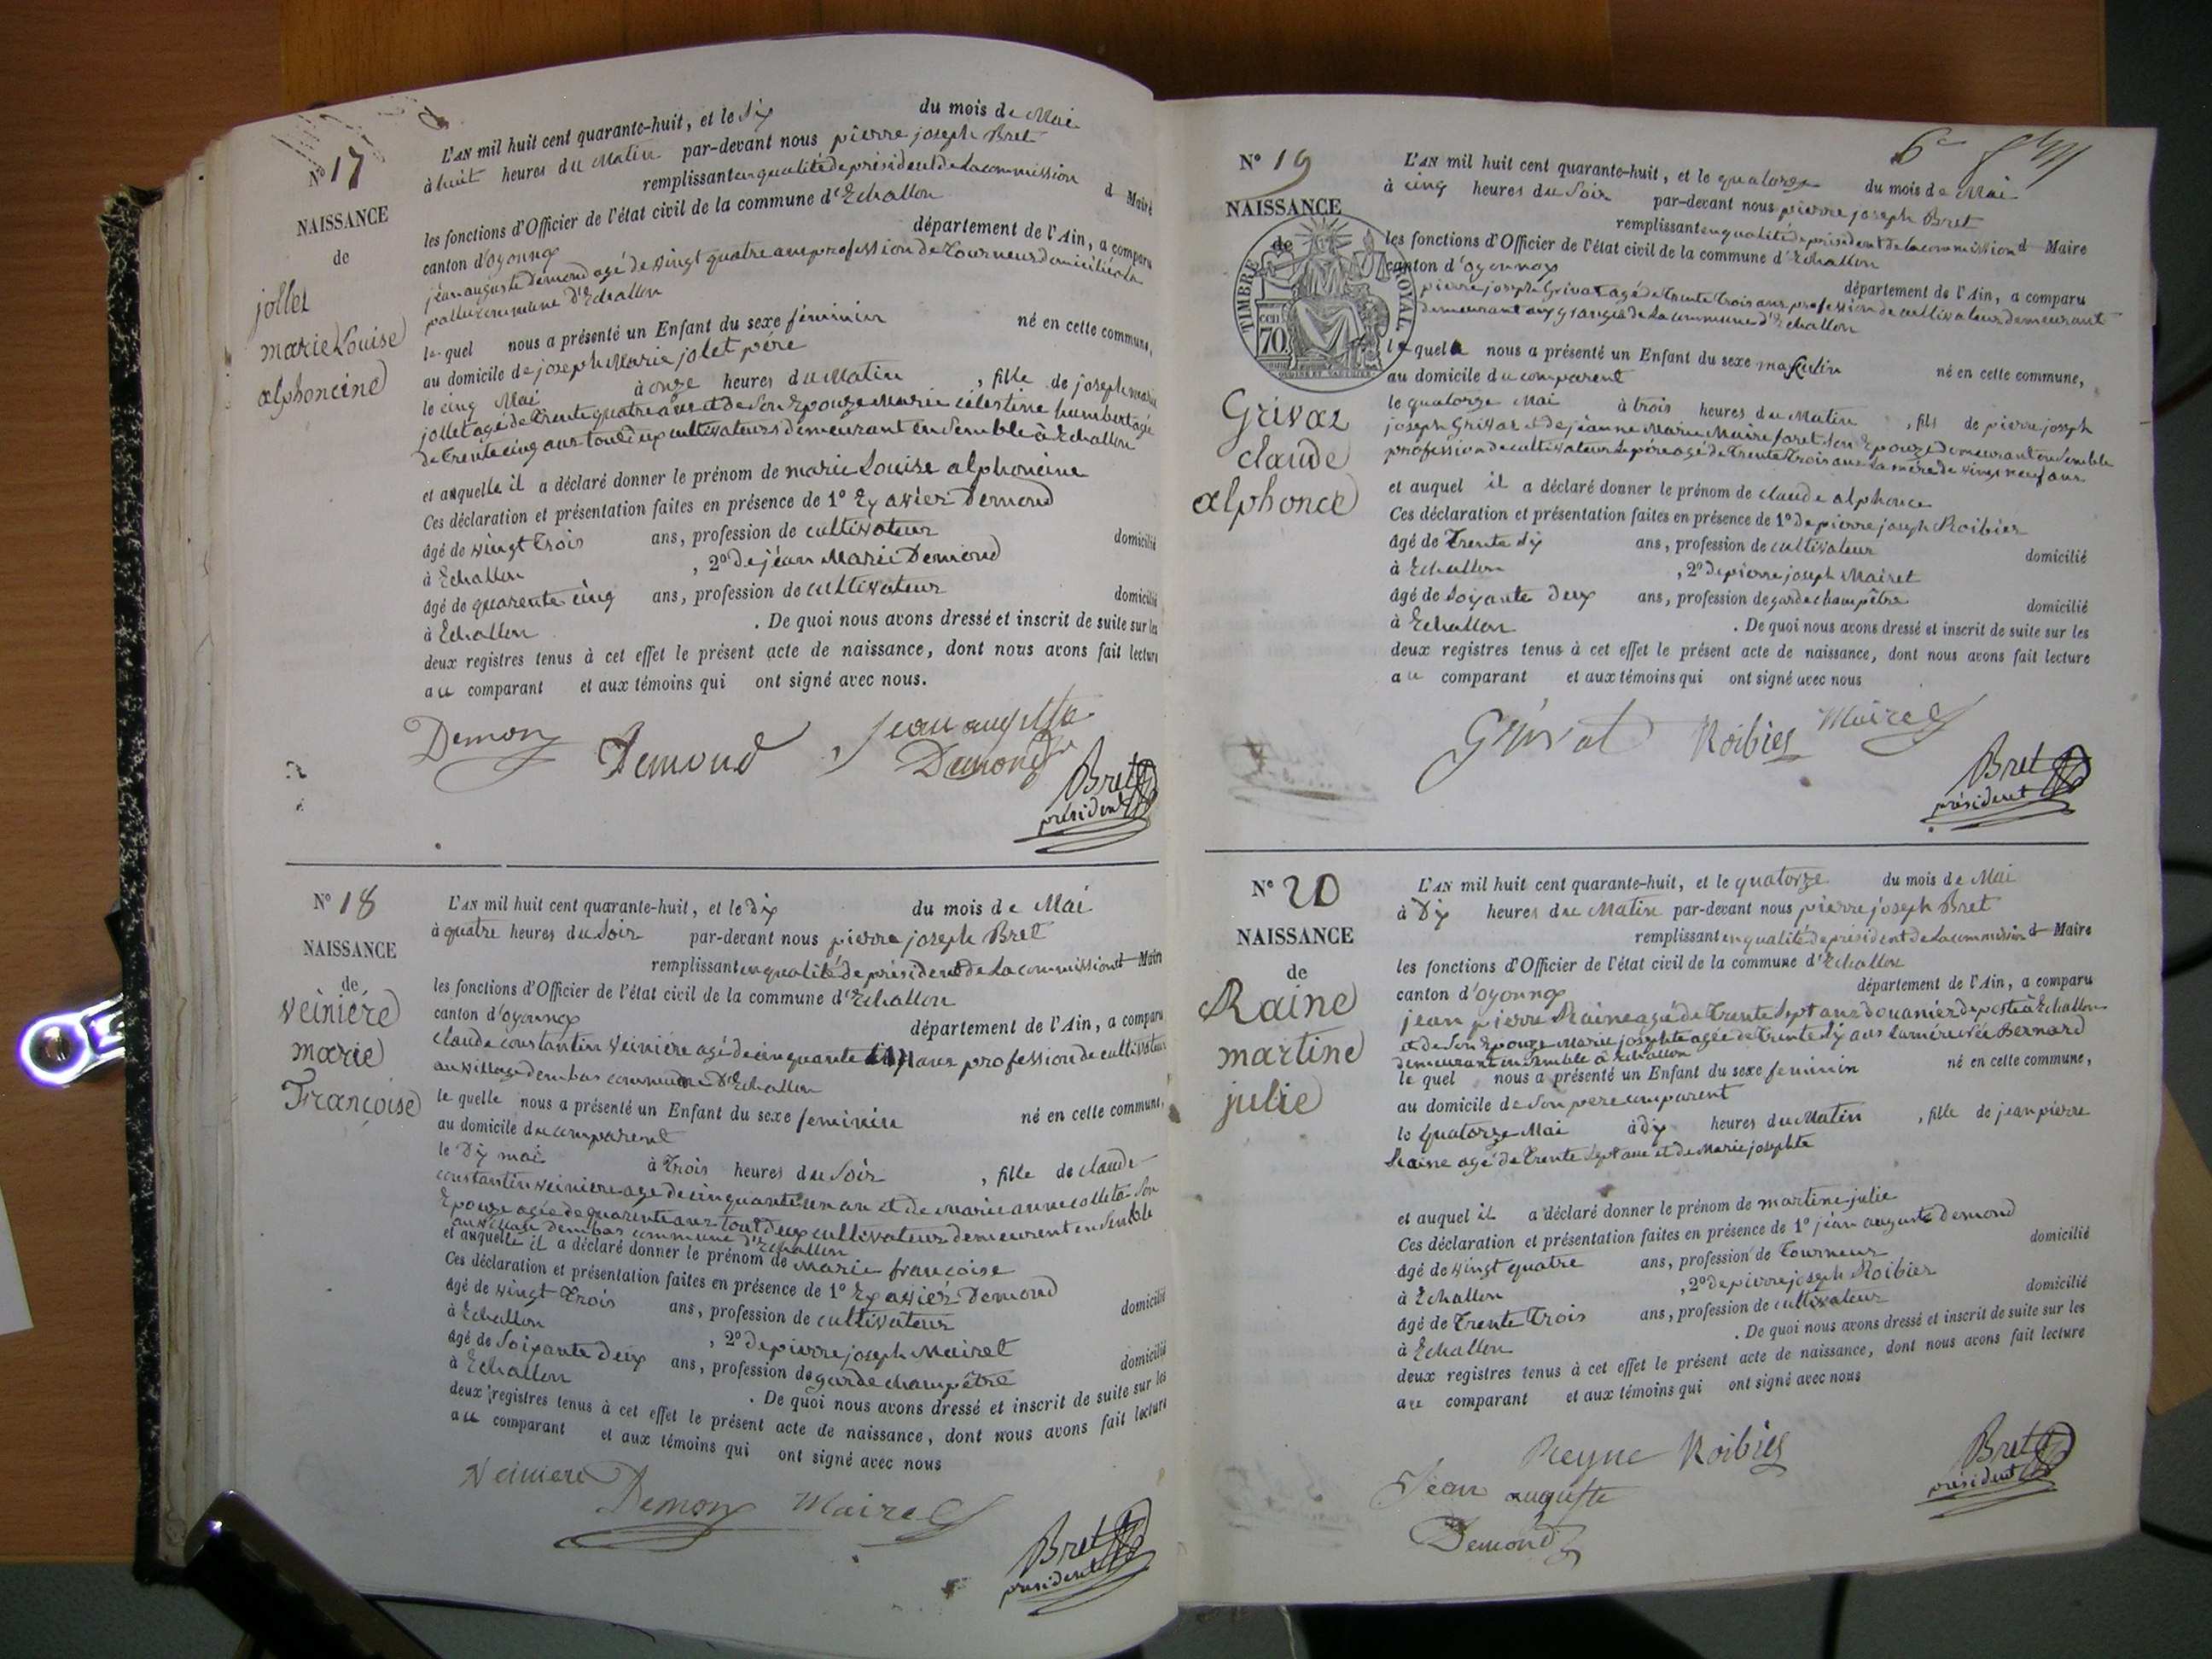 Nº 17
NAISSANCE
de
jollet
marie Louise
alphoncine
L'AN mil huit cent quarante-huit, et le Six du mois de Mai
à huit heures du Matin par-devant nous pierre joseph Bret
remplissant en qualité de président de la commission d Maire
les fonctions d'Officier de l'état civil de la commune d'Echallon
canton d'oyonnax département de l'Ain, a comparu
jean auguste Demond agé de vingt quatre ans profession de Tourneur domicilié
commune d'Echallon
le quel nous a présenté un Enfant du sexe féminin né en cette commune,
au domicile de joseph Marie jolet père
le cinq Mai à onze heures du Matin , fille de joseph marie
jollet agé de Trente quatre ans et de Son Epouze Marie célestine humbert agée
de Trente cinq ans tout deux cultivateurs demeurant en Semble à Echallon
et auquelle il a déclaré donner le prénom de marie Louise alphoncine
Ces déclaration et présentation faites en présence de 1º Exavier Demond
âgé de vingt Trois ans, profession de cultivateur domicilié
à Echallon , 2º de jéan Marie Demond
âgé de quarente cinq ans, profession de cultivateur domicilié
à Echallon . De quoi nous avons dressé et inscrit de suite sur les
deux registres tenus à cet effet le présent acte de naissance, dont nous avons fait lecture
au comparant et aux témoins qui ont signé avec nous.
Demon Demond Jean auguste
Demond
Bret
président
Nº 18
NAISSANCE
de
veiniére
marie
Françoise
L'AN mil huit cent quarante-huit, et le Dix du mois de Mai
à quatre heures du Soir par-devant nous pierre joseph Bret
remplissant en qualité de président de La commission d Maire
les fonctions d'Officier de l'état civil de la commune d'Echallon
canton d'oyonnax département de l'Ain, a comparu
claude constantin veiniére agé de cinquante ans profession de cultivateur
au village denbas commune d'Echallon
le quelle nous a présenté un Enfant du sexe feminin né en cette commune,
au domicile du comparent
le Dix mai à Trois heures du Soir , fille de claude
constantin veiniere agé de cinquante un an et de marie anne colleta Son
Epouze agée de quarente ans tout deux cultivateurs demeurent en Semble
au village Denbas commune d'Echallon
et auquelle il a déclaré donner le prénom de Marie francoise
Ces déclaration et présentation faites en présence de 1º Exaviér Demond
âgé de vingt Trois ans, profession de cultivateur domicilié
à Echallon , 2º de pierre joseph Mairet
âgé de Soixante Deux ans, profession de garde champêtre domicilié
à Echallon . De quoi nous avons dressé et inscrit de suite sur les
deux registres tenus à cet effet le présent acte de naissance, dont nous avons fait lecture
au comparant et aux témoins qui ont signé avec nous
Veiniere Demon Mairet
Bret
président
6e
Nº 19
NAISSANCE
de
TIMBRE ROYAL
70
cen
Grivaz
claude
alphonce
L'AN mil huit cent quarante-huit, et le quatorze du mois de Mai
à cinq heures du Soir par-devant nous pierre joseph Bret
remplissant en qualité de président de La commission d Maire
les fonctions d'Officier de l'état civil de la commune d'Echallon
canton d'oyonnax département de l'Ain, a comparu
pierre joseph Grivaz agé de Trente Trois ans profession de cultivateur demeurant
demeurant aux granges de La commune d'Echallon
le quel nous a présenté un Enfant du sexe maskulin né en cette commune,
au domicile du comparent
le quatorze Mai à trois heures du Matin , fils de pierre joseph
joseph Grivat et de jéanne Marie Maire foret Son Epouze demeurant en Semble
profession de cultivateur Le père agé de Trente Trois ans La mère de vingt neuf ans
et auquel il a déclaré donner le prénom de claude alphonce
Ces déclaration et présentation faites en présence de 1º de pierre joseph Roibier
âgé de Trente Six ans, profession de cultivateur domicilié
à Echallon , 2º de pierre joseph Mairet
âgé de Soixante Deux ans, profession de garde champêtre domicilié
à Echallon . De quoi nous avons dressé et inscrit de suite sur les
deux registres tenus à cet effet le présent acte de naissance, dont nous avons fait lecture
au comparant et aux témoins qui ont signé avec nous
Grivat Roibier Mairet
Bret
président
Nº 20
NAISSANCE
de
Raine
martine
julie
L'AN mil huit cent quarante-huit, et le quatorze du mois de Mai
à Dix heures du Matin par-devant nous pierre joseph Bret
remplissant en qualité de président de La commission d Maire
les fonctions d'Officier de l'état civil de la commune d'Echallon
canton d'oyonnax département de l'Ain, a comparu
jean pierre Raine agé de Trente Sept ans douanier de poste à Echallon
et de Son Epouze Marie josephte agée de Trente Six ans La mére née Bernard
demeurant en Semble à Echallon
le quel nous a présenté un Enfant du sexe feminin né en cette commune,
au domicile de Son père comparent
le Quatorze Mai à dix heures du Matin , fille de jean pierre
Raine agé de Trente Sept ans et de Marie josephte
et auquel il a déclaré donner le prénom de martine julie
Ces déclaration et présentation faites en présence de 1º jéan auguste Demond
âgé de vingt quatre ans, profession de Tourneur domicilié
à Echallon , 2º de pierre joseph Roibier
âgé de Trente Trois ans, profession de cultivateur domicilié
à Echallon . De quoi nous avons dressé et inscrit de suite sur les
deux registres tenus à cet effet le présent acte de naissance, dont nous avons fait lecture
au comparant et aux témoins qui ont signé avec nous
Reyne Roibier
Jean auguste
Demond
Bret
président